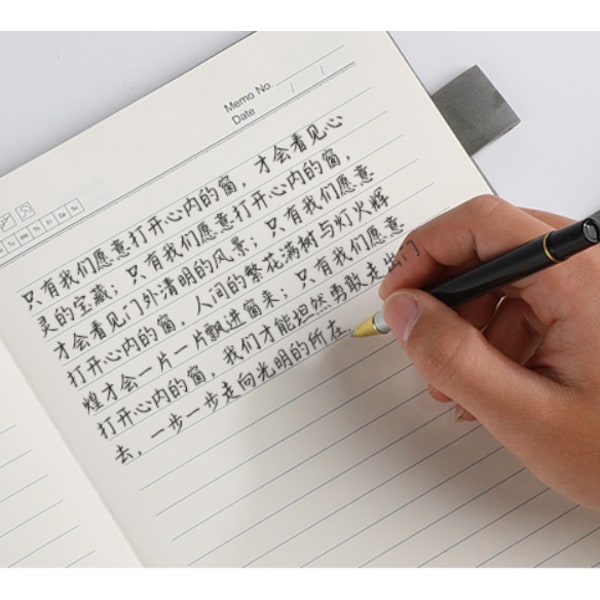 Memo No.
Date
Mo Tu We Th Fr Sa Su
只有我们愿意打开心内的窗，才会看见心
灵的宝藏；只有我们愿意打开心内的窗，
才会看见门外清明的风景；只有我们愿意
打开心内的窗，人间的繁花满树与灯火辉
煌才会一片一片飘进窗来；只有我们愿意
打开心内的窗，我们才能坦然勇敢走出门
去，一步一步走向光明的所在